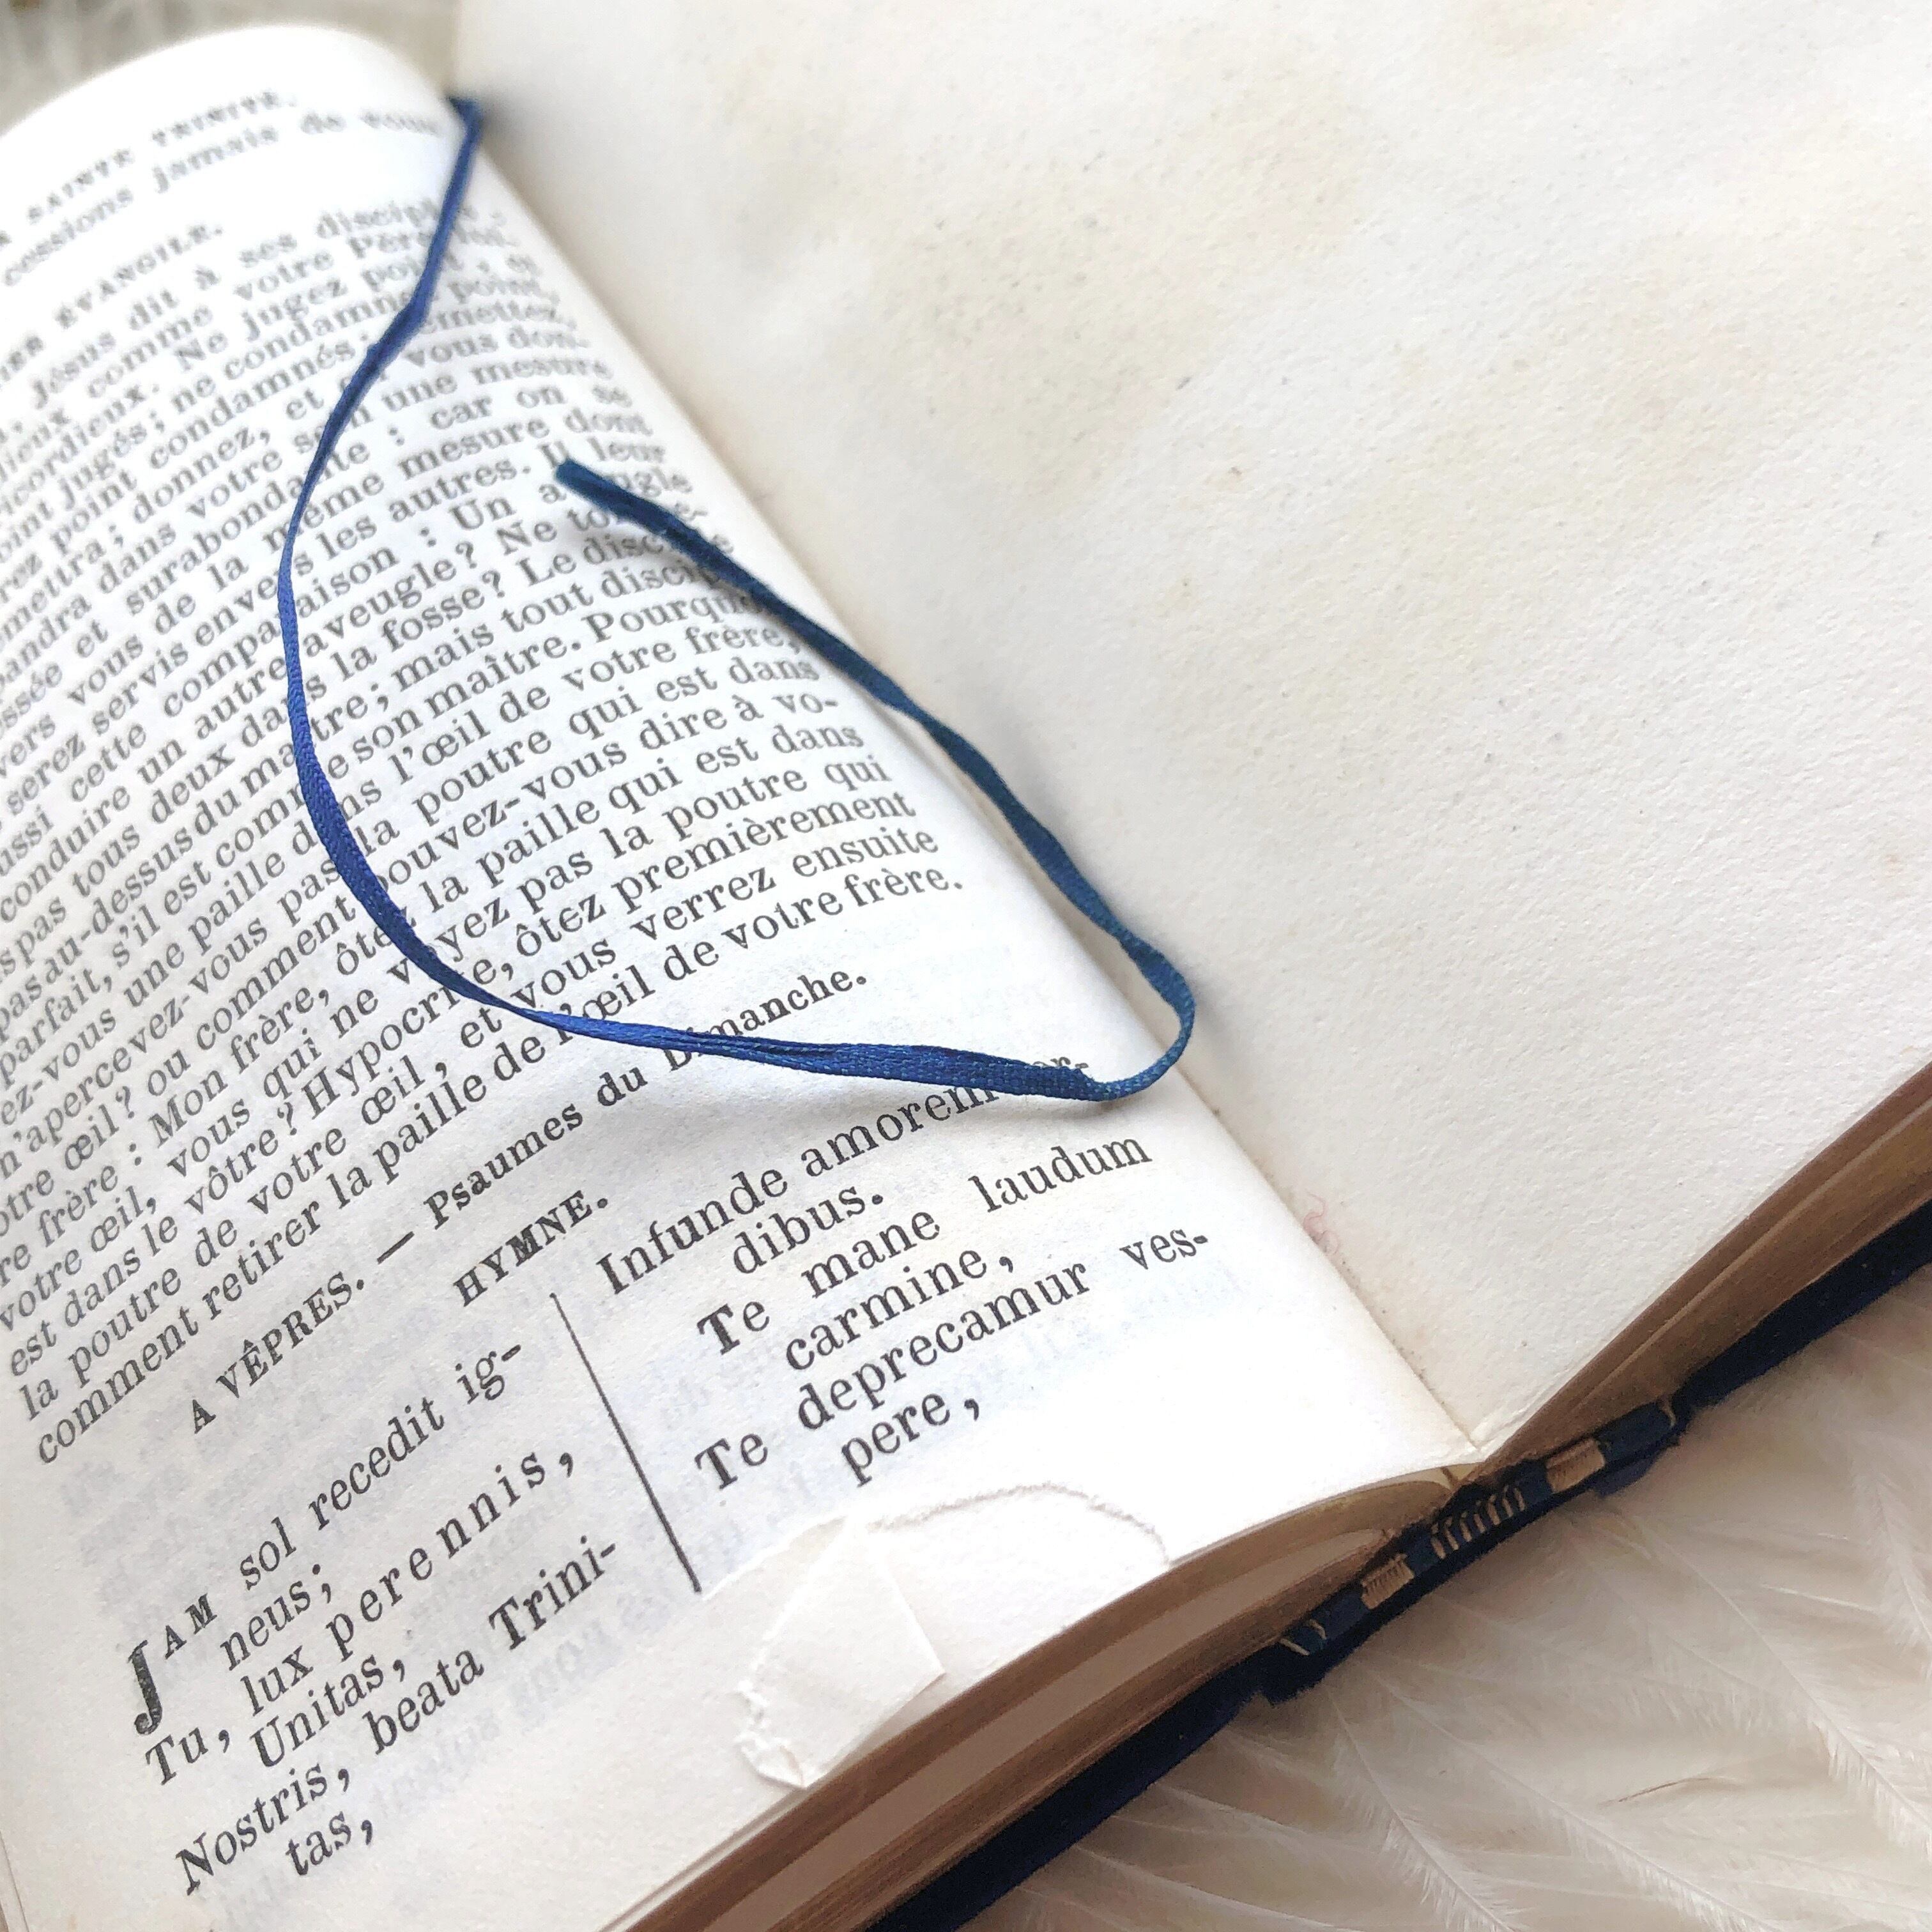 SAINTE TRINITÉ.
cessions jamais de vous
ÉVANGILE.
Jésus dit à ses disciples
comme votre Père
Ne jugez point, et
jugés; ne condamnez point,
point condamnés.
donnez, et vous don-
dans votre sein une mesure
et surabondante : car on se
vous de la même mesure dont
serez servis envers les autres. Il leur
aussi cette comparaison : Un aveugle
conduire un autre aveugle? Ne tom-
pas tous deux dans la fosse? Le disci-
pas au-dessus du maître; mais tout disciple
parfait, s'il est comme son maître. Pourquoi
ez-vous une paille dans l'œil de votre frère,
n'apercevez-vous pas la poutre qui est dans
otre œil? ou comment pouvez-vous dire à vo-
re frère : Mon frère, ôtez la paille qui est dans
votre œil, vous qui ne voyez pas la poutre qui
est dans le vôtre? Hypocrite, ôtez premièrement
la poutre de votre œil, et vous verrez ensuite
comment retirer la paille de l'œil de votre frère.
A VÊPRES. — Psaumes du Dimanche.
HYMNE.
JAM sol recedit ig-
neus;
Tu, lux perennis,
Unitas,
Nostris, beata Trini-
tas,
Infunde amorem cor-
dibus.
Te mane laudum
carmine,
Te deprecamur ves-
pere,